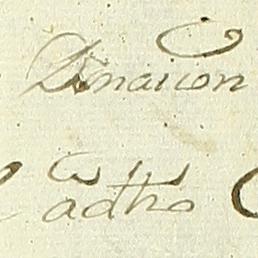 Donacion
adho